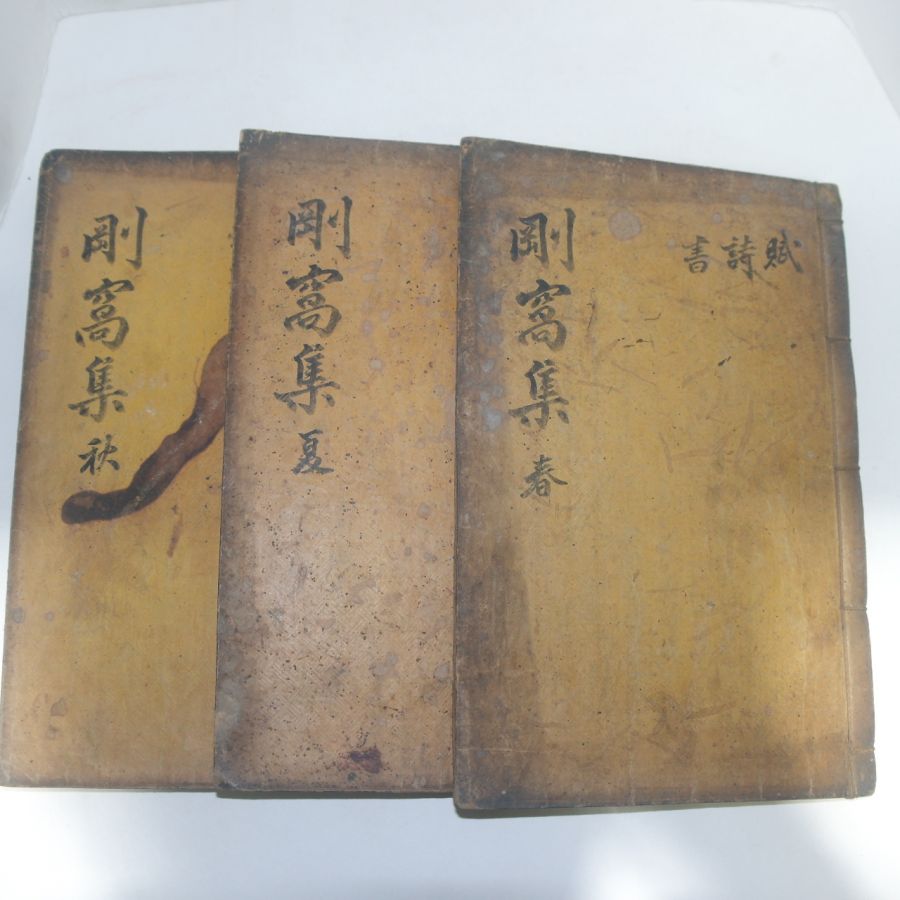 剛窩集 秋
剛窩集 夏
剛窩集 春
賦詩書